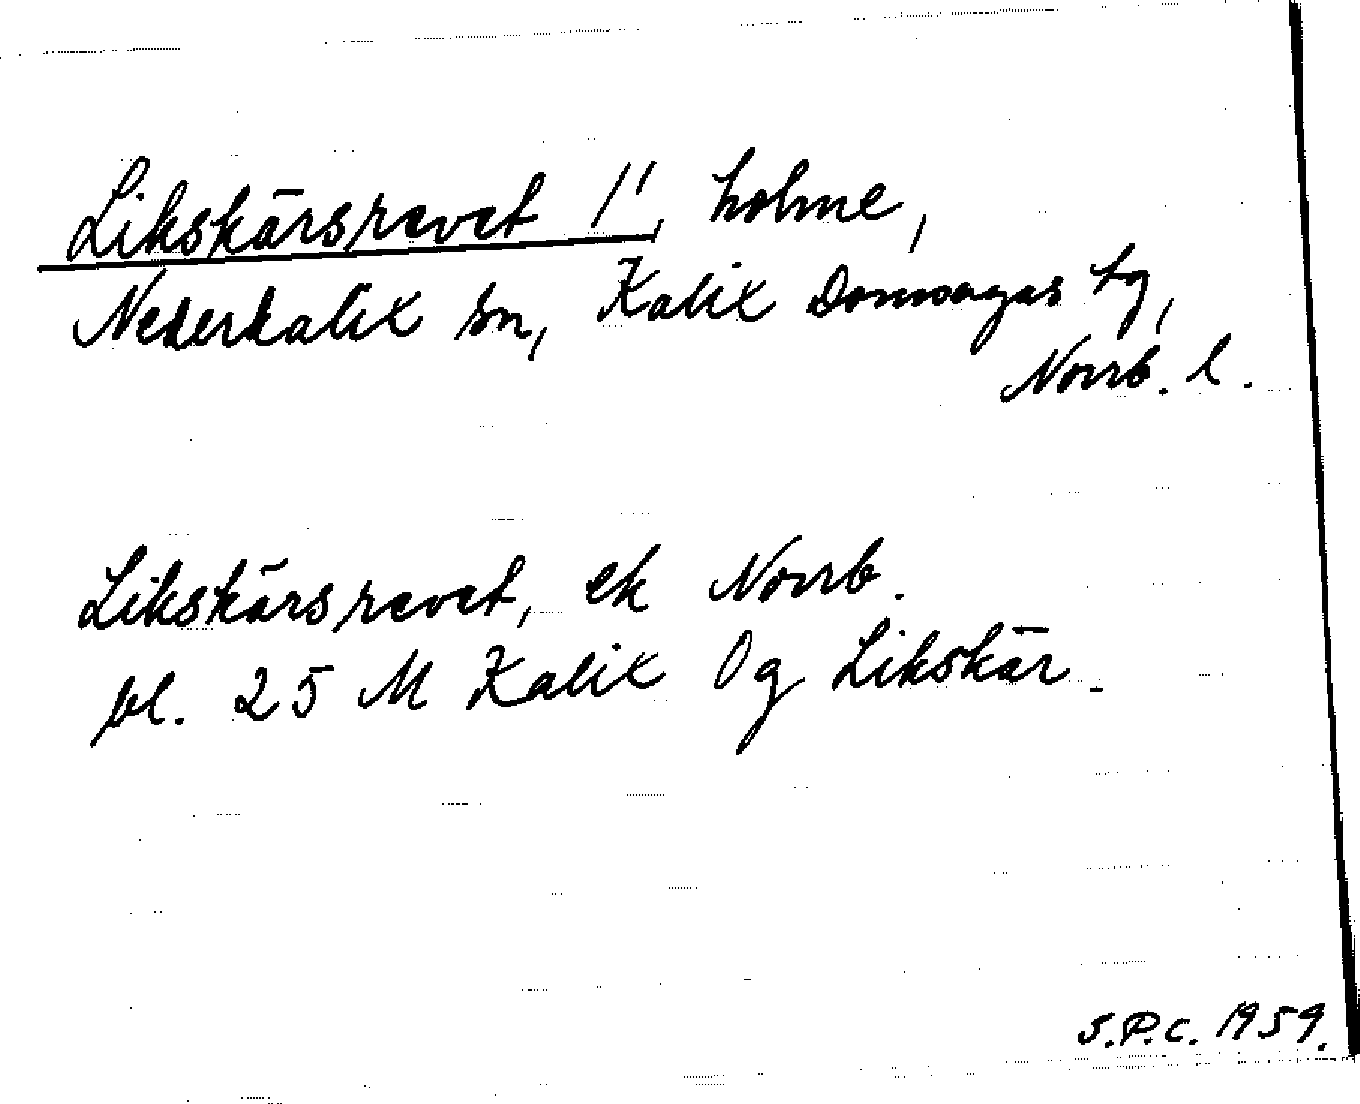 Likskärsrevet 1', holme,
Nederkalix sn, Kalix Domsagas tg,
Norrb. l.
Likskärsrevet, ek Norrb.
bl. 25 M Kalix Og Likskär.
S.P.C. 1959.